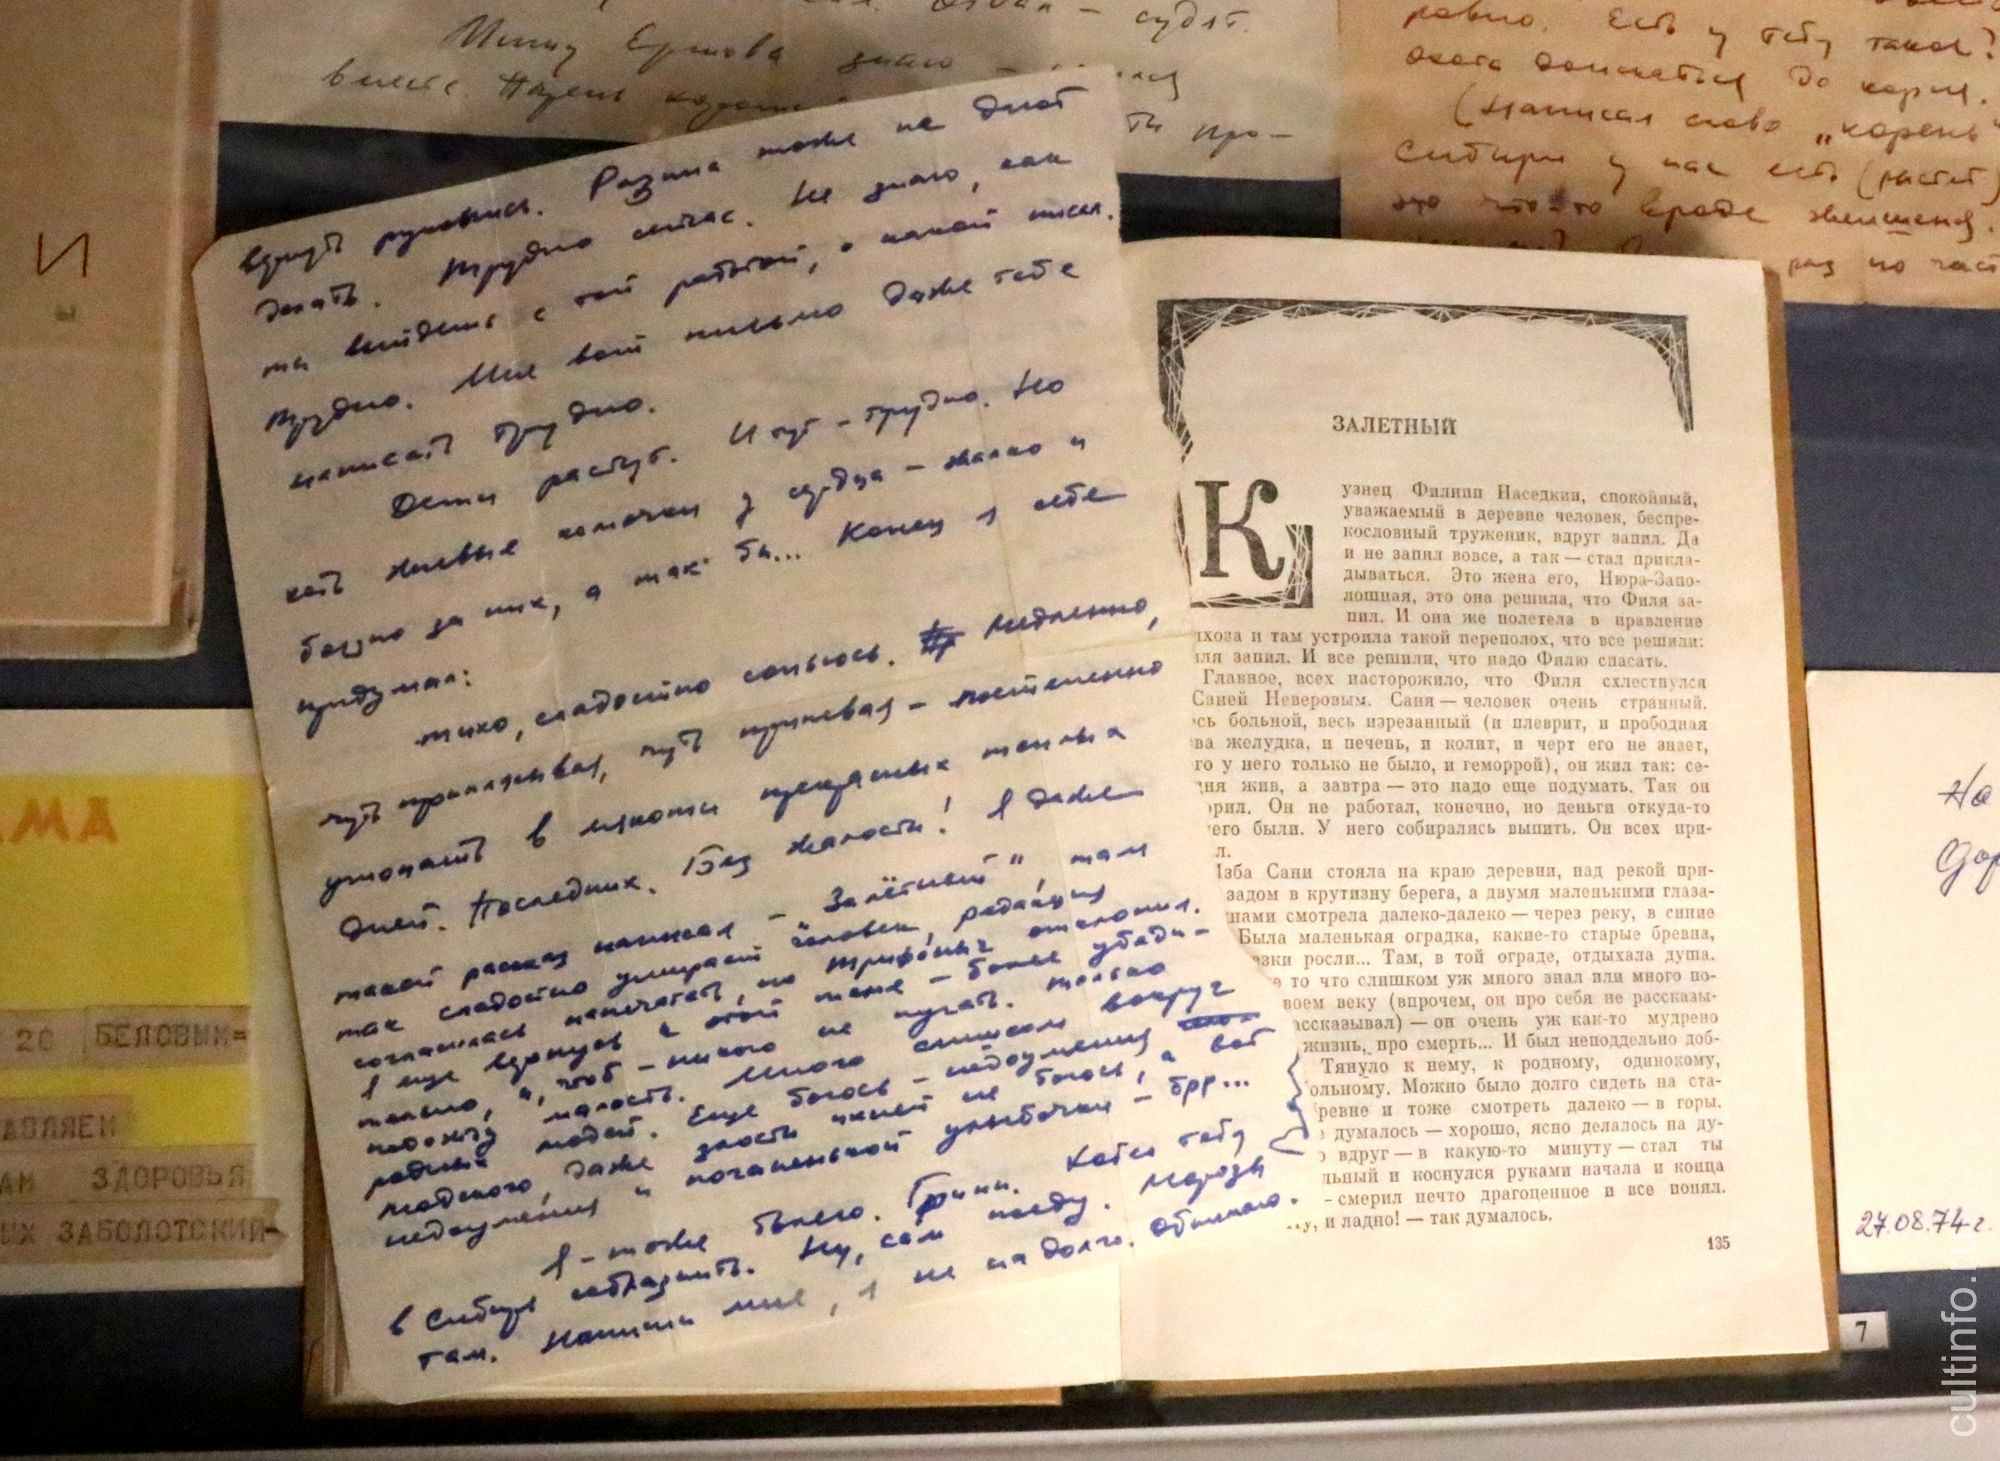 судят.
Мишу Ершова знаю —
вместе. Парень хороший
ть про-
равно. Есть у тебя такое?
охота докопаться до корня.
(Написал слово „корень"
Сибири у нас есть (растет)
это что-то вроде женьшеня.
раз по част
И
ы
вернуть рукопись. Разина тоже не дают
делать. Трудно сейчас. Не знаю, как
ты выйдешь с той работой, о какой писал.
Трудно. Мне вот письмо даже тебе
написать трудно.
Дети растут. И тут – трудно. Но
хоть живые комочки у сердца – жалко и
боязно за них, а так бы... Конец я себе
придумал:
тихо, сладостно сопьюсь. Медленно,
чуть припевая – постепенно
утопать в мякоти прекрасных теплых
дней. Последних. Без жалости! Я даже
такой рассказ написал – „Залётный", там
так сладостно умирает человек, редакция
согласилась напечатать, но Трифоныч отклонил.
Я еще вернусь к этой теме – более убеди-
тельно, чтоб – никого не пугать. Только
подожду малость. Много слишком вокруг
родных людей. Еще боюсь – недоумения
людского, даже злости ихней не боюсь, а вот
недоумения и поганенькой улыбочки – брр...
Я – тоже болею. Грипп. Хотел тебя
в Сибирь сблазнить. Ну, сам поеду. Морозы
там. Напиши мне, я не надолго. Обнимаю.
ЗАЛЕТНЫЙ
Кузнец Филипп Наседкин, спокойный,
уважаемый в деревне человек, беспре-
кословный труженик, вдруг запил. Да
и не запил вовсе, а так — стал прикла-
дываться. Это жена его, Нюра-Запо-
лошная, это она решила, что Филя за-
пил. И она же полетела в правление
лхоза и там устроила такой переполох, что все решили:
ля запил. И все решили, что надо Филю спасать.
Главное, всех насторожило, что Филя схлестнулся
Саней Неверовым. Саня — человек очень странный.
сь больной, весь изрезанный (и плеврит, и прободная
ва желудка, и печень, и колит, и черт его не знает,
го у него только не было, и геморрой), он жил так: се-
ня жив, а завтра — это надо еще подумать. Так он
орил. Он не работал, конечно, но деньги откуда-то
него были. У него собирались выпить. Он всех при-
л.
Изба Сани стояла на краю деревни, над рекой при-
задом в крутизну берега, а двумя маленькими глаза-
нами смотрела далеко-далеко — через реку, в синие
Была маленькая оградка, какие-то старые бревна,
езки росли... Там, в той ограде, отдыхала душа.
е то что слишком уж много знал или много по-
воем веку (впрочем, он про себя не рассказы-
ассказывал) — он очень уж как-то мудрено
жизнь, про смерть... И был неподдельно доб-
Тянуло к нему, к родному, одинокому,
ольному. Можно было долго сидеть на ста-
ревне и тоже смотреть далеко — в горы.
думалось — хорошо, ясно делалось на ду-
вдруг — в какую-то минуту — стал ты
льный и коснулся руками начала и конца
– смерил нечто драгоценное и все понял.
у, и ладно! — так думалось.
135
АМА
20 БЕЛОВЫМ=
АВЛЯЕМ
АМ ЗДОРОВЬЯ
ЫХ ЗАБОЛОТСКИЙ-
На
Дор
27.08.74 г.
7
cultinfo.ru